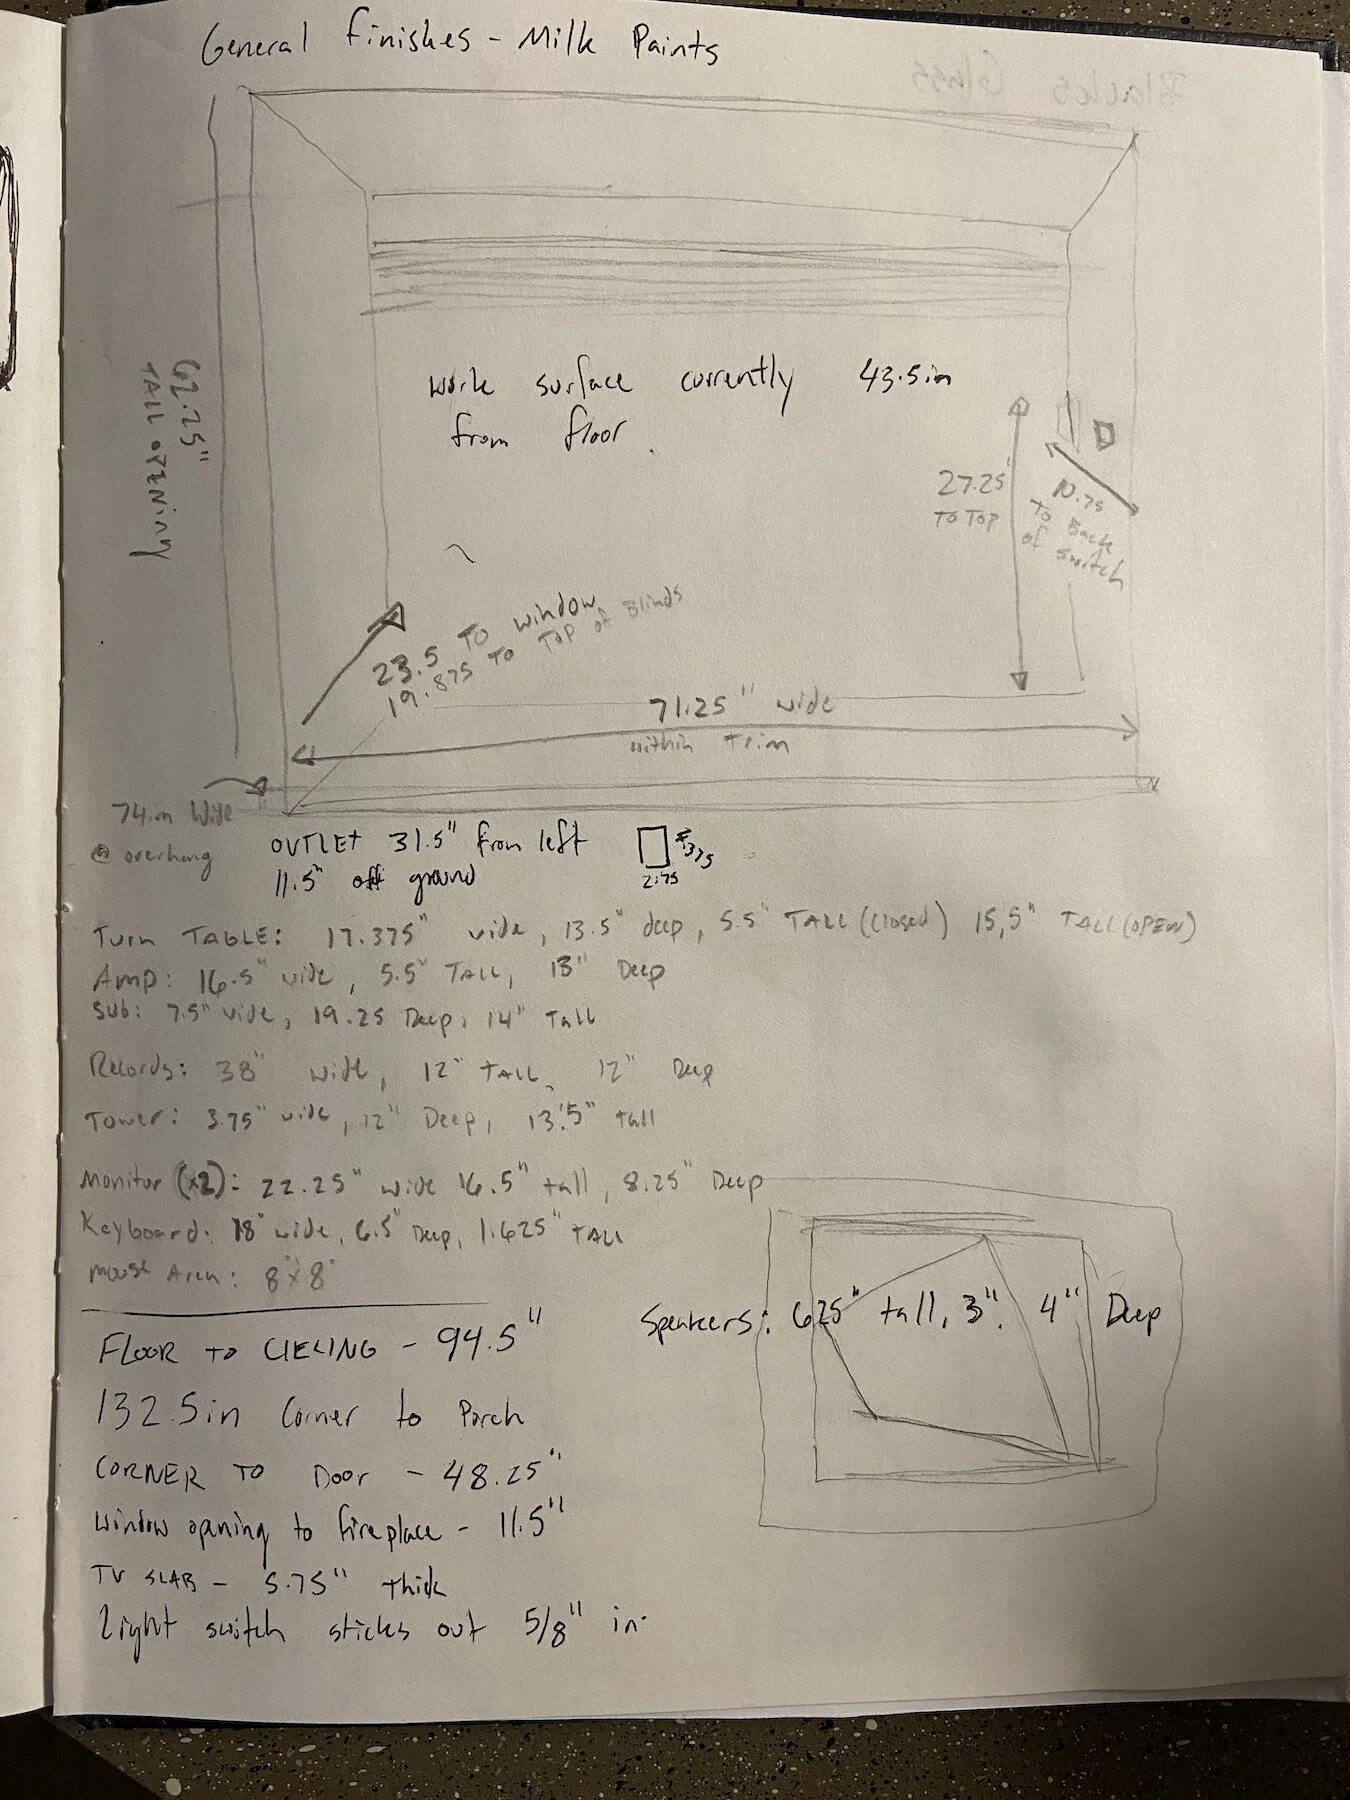 General Finishes - Milk Paints
62.25"
TALL OPENING
work surface currently 43.5in
from floor.
27.25"
TO TOP
10.75
TO Back
of switch
23.5 TO window
19.875 TO TOP of Blinds
71.25" wide
within trim
74in Wide
@ overhang
OUTLET 31.5" from left
11.5" off ground
2.75
Turn TABLE: 17.375" wide, 13.5" deep, 5.5" TALL (closed) 15,5" TALL (OPEN)
Amp: 16.5" wide, 5.5" TALL, 13" Deep
Sub: 7.5" wide, 19.25 Deep, 14" Tall
Records: 38" wide, 12" TALL, 12" Deep
Tower: 3.75" wide, 12" Deep, 13.5" tall
Monitor (x2): 22.25" wide 16.5" tall, 8.25" Deep
Keyboard: 18" wide, 6.5" Deep, 1.625" TALL
Mouse Area: 8"x8"
Speakers: 6.25" tall, 3", 4" Deep
FLOOR TO CIELING - 94.5"
132.5in Corner to Porch
CORNER TO Door - 48.25"
Window opening to fireplace - 11.5"
TV SLAB - 5.75" thick
Light switch sticks out 5/8" in.